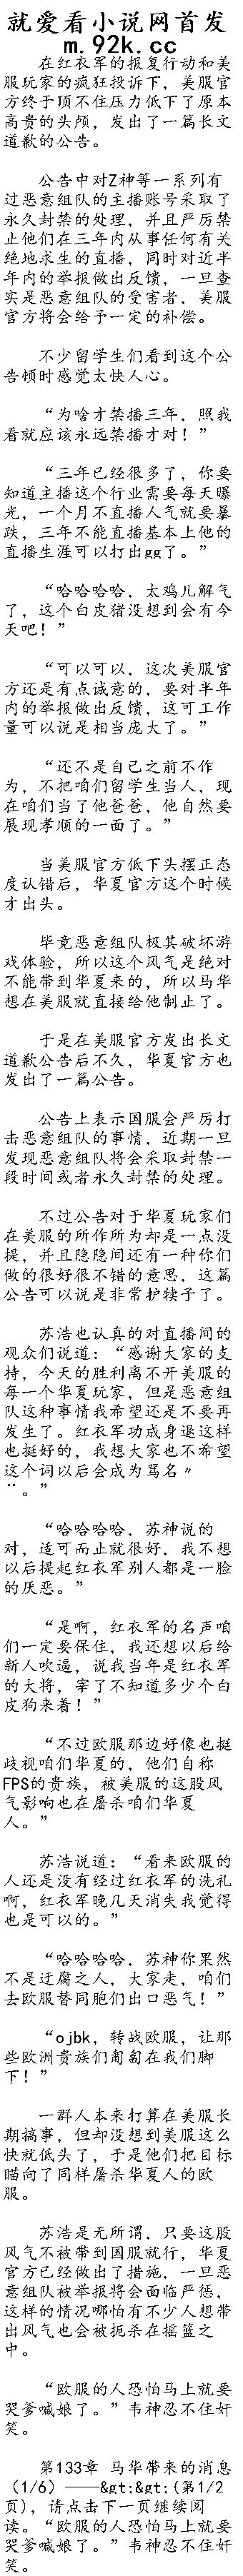 就爱看小说网首发
m.92k.cc
在红衣军的报复行动和美
服玩家的疯狂投诉下，美服官
方终于顶不住压力低下了原本
高贵的头颅，发出了一篇长文
道歉的公告。
公告中对Z神等一系列有
过恶意组队的主播账号采取了
永久封禁的处理，并且严厉禁
止他们在三年内从事任何有关
绝地求生的直播，同时对近半
年内的举报做出反馈，一旦查
实是恶意组队的受害者，美服
官方将会给予一定的补偿。
不少留学生们看到这个公
告顿时感觉太快人心。
“为啥才禁播三年，照我
看就应该永远禁播才对！”
“三年已经很多了，你要
知道主播这个行业需要每天曝
光，一个月不直播人气就要暴
跌，三年不能直播基本上他的
直播生涯可以打出gg了。”
“哈哈哈哈，太鸡儿解气
了，这个白皮猪没想到会有今
天吧！”
“可以可以，这次美服官
方还是有点诚意的，要对半年
内的举报做出反馈，这可工作
量可以说是相当庞大了。”
“还不是自己之前不作
为，不把咱们留学生当人，现
在咱们当了他爸爸，他自然要
展现孝顺的一面了。”
当美服官方低下头摆正态
度认错后，华夏官方这个时候
才出头。
毕竟恶意组队极其破坏游
戏体验，所以这个风气是绝对
不能带到华夏来的，所以马华
想在美服就直接给他制止了。
于是在美服官方发出长文
道歉公告后不久，华夏官方也
发出了一篇公告。
公告上表示国服会严厉打
击恶意组队的事情，近期一旦
发现恶意组队将会采取封禁一
段时间或者永久封禁的处理。
不过公告对于华夏玩家们
在美服的所作所为却是一点没
提，并且隐隐间还有一种你们
做的很好很不错的意思，这篇
公告可以说是非常护犊子了。
苏浩也认真的对直播间的
观众们说道：“感谢大家的支
持，今天的胜利离不开美服的
每一个华夏玩家，但是恶意组
队这种事情我希望还是不要再
发生了。红衣军功成身退这样
也挺好的，我想大家也不希望
这个词以后会成为骂名〃
¨。”
“哈哈哈哈，苏神说的
对，适可而止就很好，我不想
以后提起红衣军别人都是一脸
的厌恶。”
“是啊，红衣军的名声咱
们一定要保住，我还想以后给
新人吹逼，说我当年是红衣军
的大将，宰了不知道多少个白
皮狗来着！”
“不过欧服那边好像也挺
歧视咱们华夏的，他们自称
FPS的贵族，被美服的这股风
气影响也在屠杀咱们华夏
人。”
苏浩说道：“看来欧服的
人还是没有经过红衣军的洗礼
啊，红衣军晚几天消失我觉得
也是可以的。”
“哈哈哈哈，苏神你果然
不是迂腐之人，大家走，咱们
去欧服替同胞们出口恶气！”
“ojbk，转战欧服，让那
些欧洲贵族们匍匐在我们脚
下！”
一群人本来打算在美服长
期搞事，但却没想到美服这么
快就低头了，于是他们把目标
瞄向了同样屠杀华夏人的欧
服。
苏浩是无所谓，只要这股
风气不被带到国服就行，华夏
官方已经做出了措施，一旦恶
意组队被举报将会面临严惩，
这样的情况哪怕有不少人想带
出风气也会被扼杀在摇篮之
中。
“欧服的人恐怕马上就要
哭爹喊娘了。”韦神忍不住奸
笑。
第133章 马华带来的消息
（1/6）——&gt;&gt;(第1/2
页)，请点击下一页继续阅
读。“欧服的人恐怕马上就要
哭爹喊娘了。”韦神忍不住奸
笑。